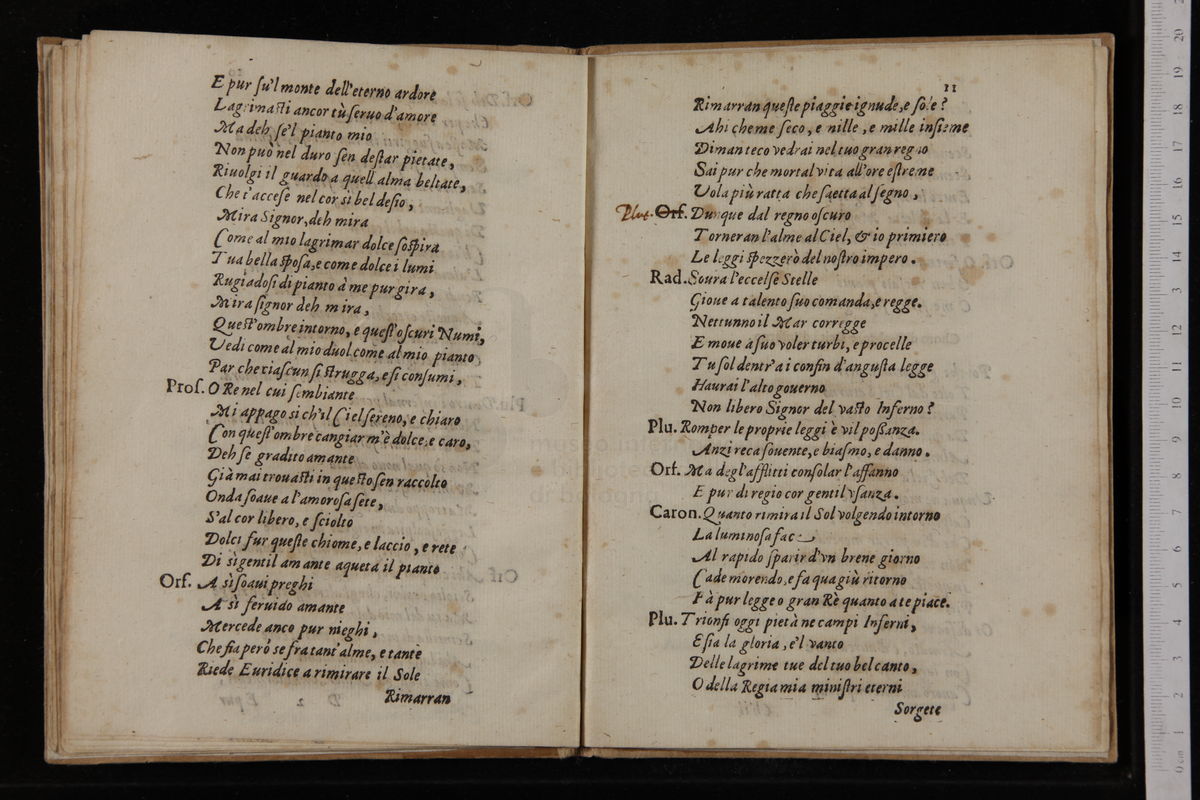 E pur ſu'l monte dell'eterno ardore
Lagrimaſti ancor tù ſeruo d'amore
Ma deh ſe'l pianto mio
Non può nel duro ſen deſtar pietate,
Riuolgi il guardo a quell alma beltate,
Che t'acceſe nel cor si bel deſio,
Mira Signor, deh mira
Come al mio lagrimar dolce ſoſpira
Tua bella ſpoſa, e come dolce i lumi
Rugiadoſi di pianto à me pur gira,
Mira ſignor deh mira,
Queſt'ombre intorno, e queſt'oſcuri Numi,
Vedi come al mio duol come al mio pianto
Par che ciaſcun ſi ſtrugga, e ſi conſumi,
Proſ. O Re nel cui ſembiante
Mi appago sì ch'il Ciel ſereno, e chiaro
Con queſt'ombre cangiar m'è dolce, e caro,
Deh ſe gradito amante
Già mai trouaſti in queſto ſen raccolto
Onda ſoaue a l'amoroſa ſete,
S'al cor libero, e ſciolto
Dolci fur queſte chiome, e laccio, e rete
Di sì gentil amante aqueta il pianto
Orf. A sì ſoaui preghi
A sì feruido amante
Mercede anco pur nieghi,
Che fia però se fra tant'alme, e tante
Riede Euridice a rimirare il Sole
Rimarran
11
Rimarran queſte piaggie ignude, e ſole?
Ahi che me ſeco, e mille, e mille inſieme
Diman teco vedrai nel tuo gran regno
Sai pur che mortal vita all'ore eſtreme
Vola più ratta che ſaetta al ſegno,
Plut. Orf. Dunque dal regno oſcuro
Torneran l'alme al Ciel, & io primiero
Le leggi ſpezzerò del noſtro impero.
Rad. Soura l'eccelſe Stelle
Gioue a talento ſuo comanda, e regge.
Nettunno il Mar corregge
E moue à ſuo voler turbi, e procelle
Tu ſol dentr'a i confin d'anguſta legge
Haurai l'alto gouerno
Non libero Signor del vaſto Inferno?
Plu. Romper le proprie leggi è vil poſſanza.
Anzi reca ſouente, e biaſmo, e danno.
Orf. Ma degl'afflitti conſolar l'affanno
E pur di regio cor gentil vſanza.
Caron. Quanto rimira il Sol volgendo intorno
La luminoſa face
Al rapido ſparir d'vn breue giorno
Cade morendo, e fa quagiù ritorno
Fà pur legge o gran Rè quanto a te piace.
Plu. Trionfi oggi pietà ne campi Inferni,
E ſia la gloria, e'l vanto
Delle lagrime tue del tuo bel canto,
O della Regia mia miniſtri eterni
Sorgete